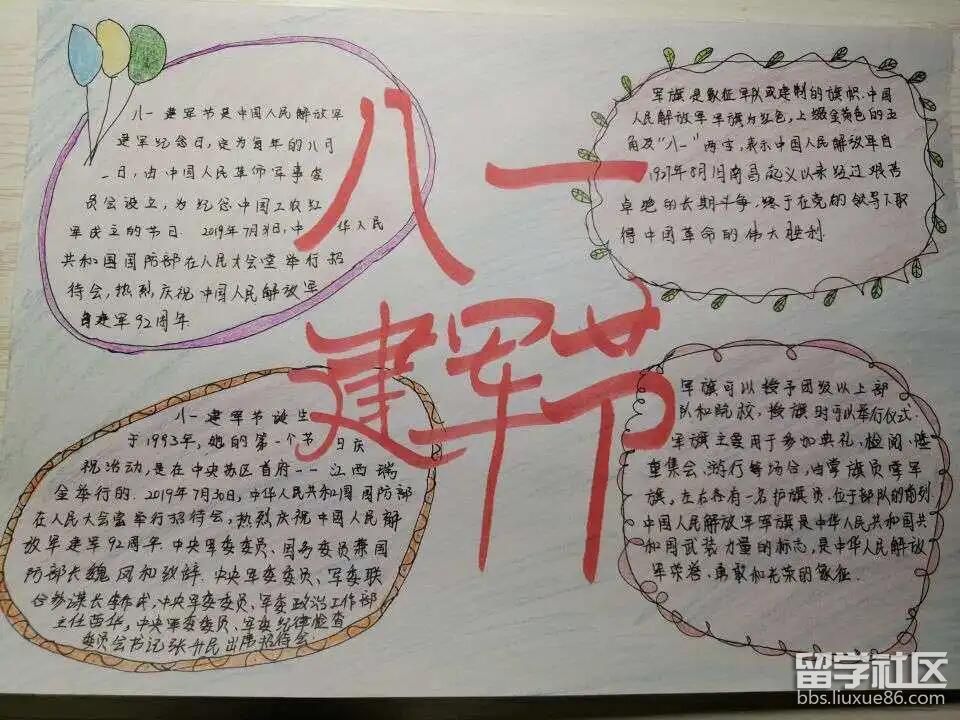 八一
建军节
八一建军节是中国人民解放军
建军纪念日,定为每年的八月
一日,由中国人民革命军事委
员会设立,为纪念中国工农红
军成立的节日.2019年7月31日,中华人民
共和国国防部在人民大会堂举行招
待会,热烈庆祝中国人民解放军
建军92周年
军旗是象征军队或建制的旗帜.中国
人民解放军军旗为红色,上缀金黄色的五
角及"八一"两字,表示中国人民解放军自
1927年8月1日南昌起义以来经过艰苦
卓绝的长期斗争,终于在党的领导下取
得中国革命的伟大胜利
八一建军节诞生
于1993年,她的第一个节日庆
祝活动,是在中央苏区首府--江西瑞
金举行的.2019年7月30日,中华人民共和国国防部
在人民大会堂举行招待会,热烈庆祝中国人民解
放军建军92周年.中央军委委员、国务委员兼国
防部长魏凤和致辞.中央军委委员、军委联
合参谋长李作成,中央军委委员、军委政治工作部
主任苗华,中央军委委员、军委纪律检查
委员会书记张升民出席招待会.
军旗可以授予团级以上部
队和院校,授旗时可以举行仪式.
军旗主要用于参加典礼、检阅、隆
重集会、游行等场合,由掌旗员掌军
旗,左右各有一名护旗员.位于部队的前列.
中国人民解放军军旗是中华人民共和国共
和国武装力量的标志,是中华人民解放
军荣誉、勇敢和光荣的象征.
留学社区
bbs.liuxue86.com